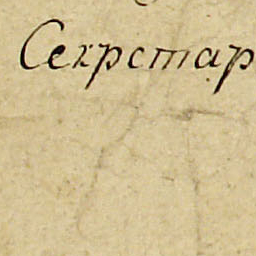 Секретар